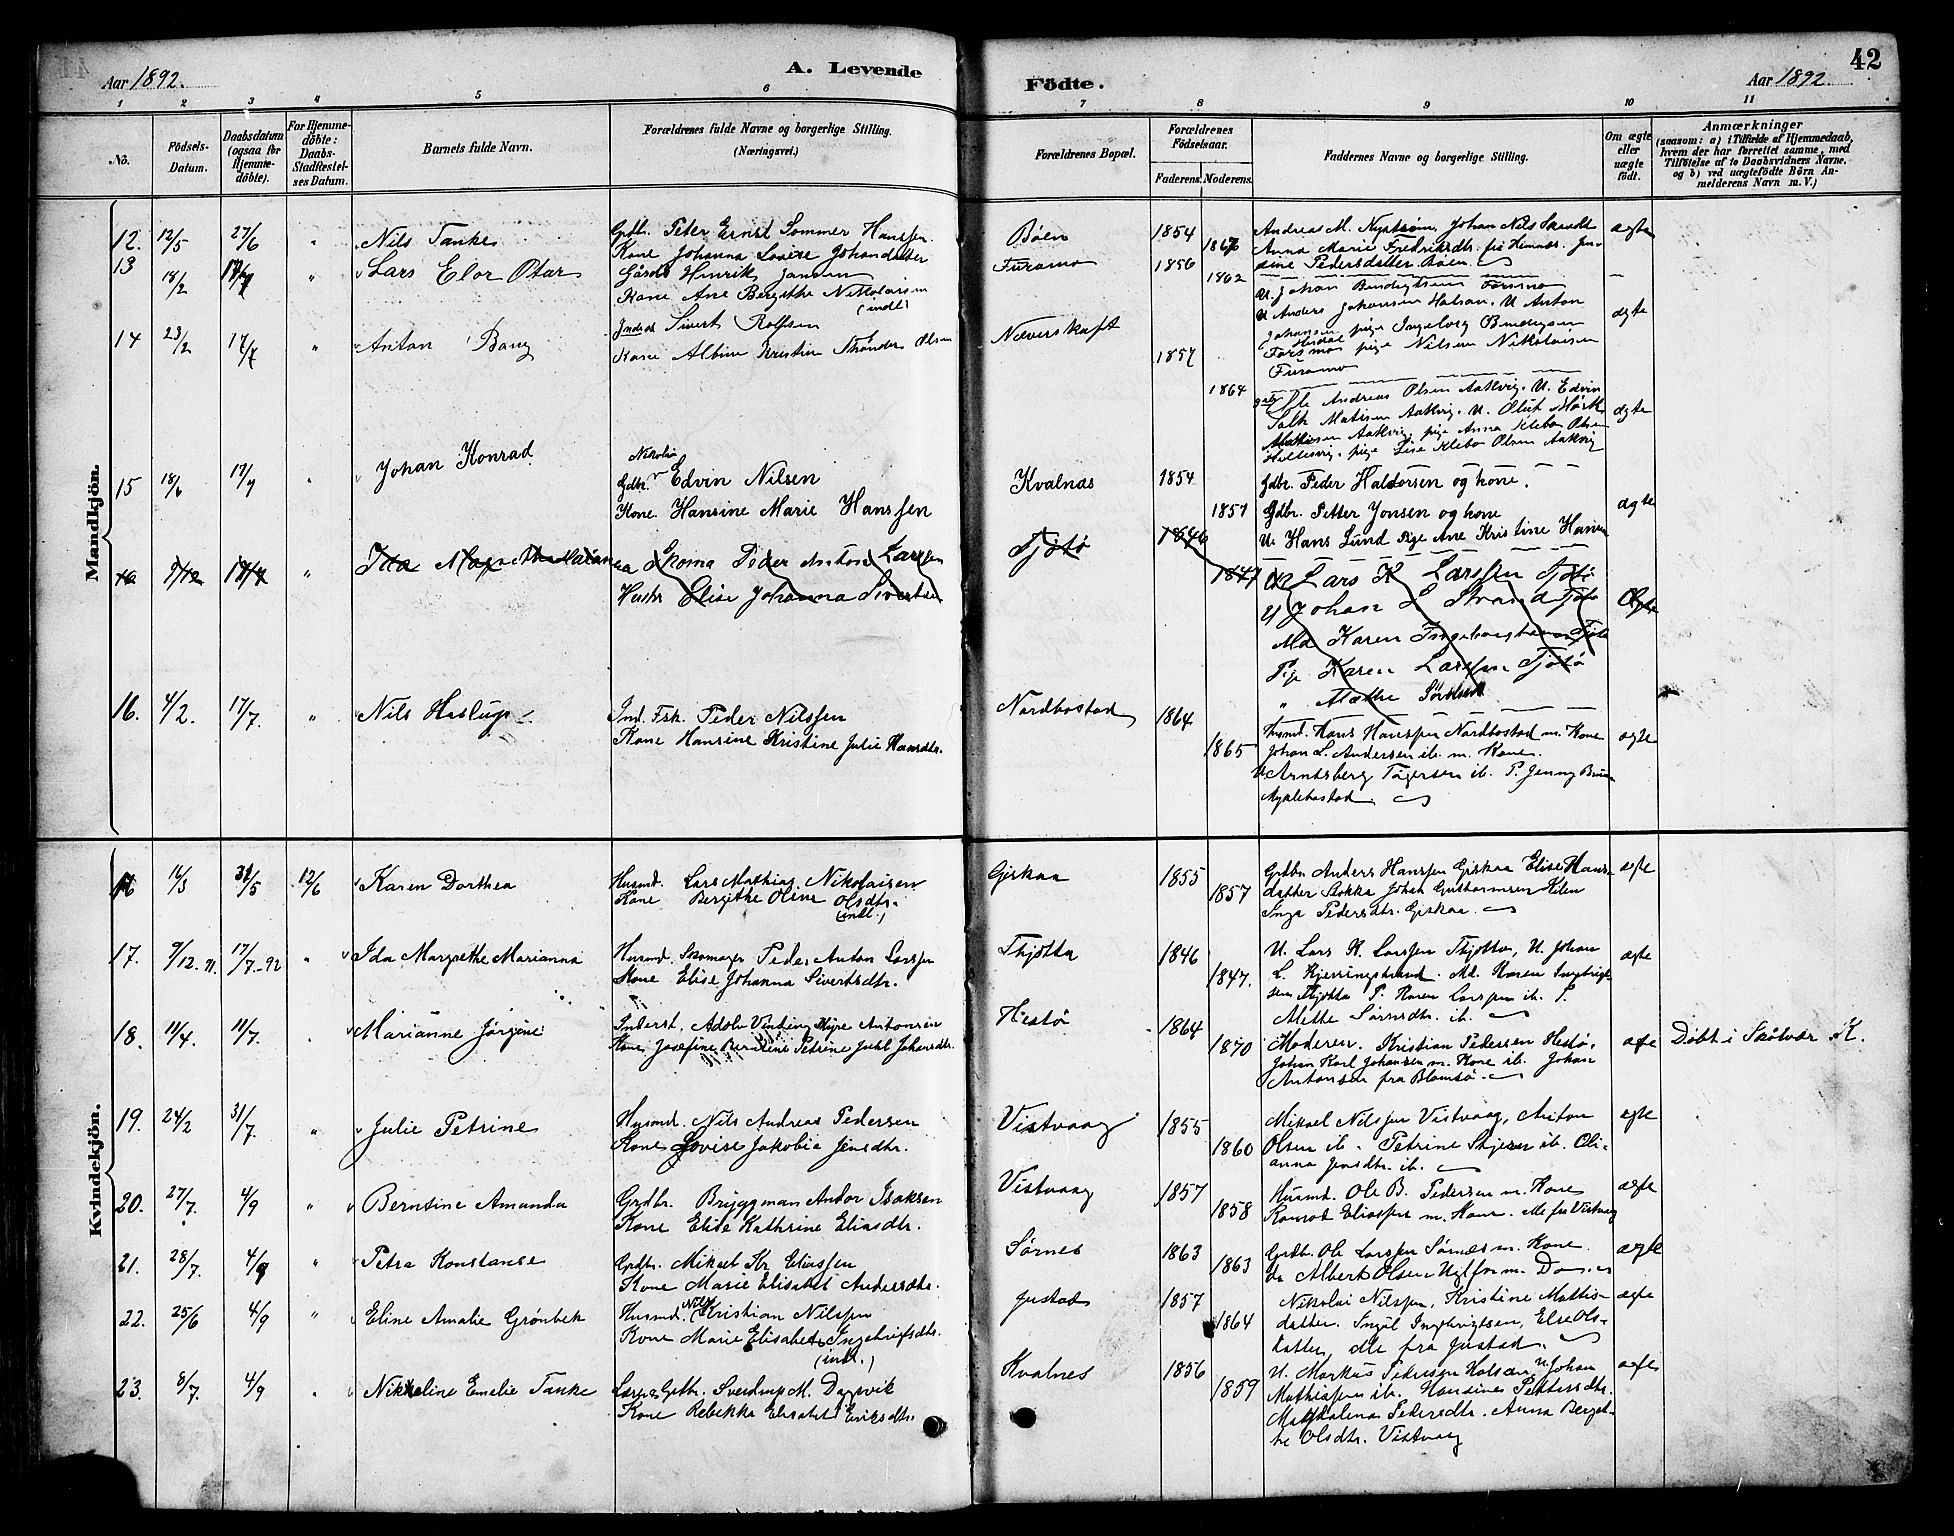 Aar 1892.
A. Levende
Födte.
Aar 1892.
42
1 2 3 4 5 6 7 8 9 10 11
No.
Födsels-
Datum.
Daabsdatum
(ogsaa for
Hjemme-
döbte).
For Hjemme-
döbte:
Daabs-
Stadfæstel-
ses Datum.
Barnets fulde Navn.
Forældrenes fulde Navne og borgerlige Stilling.
(Næringsvei.)
Forældrenes Bopæl.
Forældrenes
Födselsaar.
Faderens. Moderens.
Faddernes Navne og borgerlige Stilling.
Om ægte
eller
uægte
födt.
Anmærkninger
(saasom: a) i Tilfælde af Hjemmedaab,
hvem der har forrettet samme, med
Tilföielse af to Daabsvidners Navne,
og b) ved uægtefödte Börn An-
melderens Navn m. V.)
Mandkjön.
12. 12/5 27/6 " Nils Tanke
Grdbr. Peter Ernst Sommer Hanssen
Kone Johanna Lovise Johansdatter
Böen 1854
Andreas M. Nystrøm, Johan Nils
Anna Marie Fredriksdtr.
sine Pedersdatter Böen.
ægte
13 18/2 " Lars Elor Otar
Henrik Jansen
Kone Ane Bergithe Nikolaisen
(indl.)
Furamo 1856 1862
U. Johan Bendigtsen Forsmo
U Anders Johansen Halsan. U Anton
Johansen pige Ingeborg
Forsmo pige Nilsine Nikolaisen
Furamo
14 23/2 17/7 " Anton Bang
Inderst Sivert Rolfsen
Kone Albine Kristine Olsen
Næverskaft 1857 1864
ægte
Ole Andreas Olsen Aakvig. U. Edvin
Matisen Aakvig. U. Oluf
Aakvig, pige Anna Klebo Olsen
pige Lise Klebo Olsen Aakvig
ægte
15 18/6 17/9 " Johan Konrad
Nikolai
Gdbr. Edvin Nilsen
Kone. Hansine Marie Hanssen
Kvalnæs 1854 1857
Gdbr. Peder Haldorsen og kone.
Gdbr. Petter Jonsen og kone
U. Hans Lund Pige Ane Kristine Hansen
ægte
16 9/12 17/7 " Ida Magrethe Marianna
Skoma Peder Anton Larssen
Elise Johanna Sivertsen
Tjötö 1846 1847
U Lars K Larssen Tjötö
U Johan L Strand Tjötö
Md Karen Tjötö
Pige Karen Larssen Tjötö
" Mæthe
Ægte
16. 4/2. 17/7. " Nils Heslup
Ind. Fsk. Peder Nilssen
Kone Hansine Kristine Julie Hansdtr.
Nordbostad 1864 1865
Husmd. Hans Hanssen Nordbostad m. Kone
Johan L. Andersen ib. m. Kone.
U. Arntsberg ib. P. Jenny
Myklebostad
ægte
Kvindekjön.
16 12/6 Karen Dorthea
Husmd. Lars Mathias Nikolaisen
Kone Bergithe Oline Olsdtr.
(indl.)
Giskaa 1855 1857
Grdbr. Anders Hanssen Giskaa Elise Hans-
datter Stokka Johan Gustavmsen
Inga Pedersdtr. Giskaa.
ægte
17. 9/12.91. 17/7-92 " Ida Margrethe Marianna
Husmd. Skomager Peder Anton Larssen
Kone Elise Johanna Sivertsdtr.
Thjötta 1846 1847.
U. Lars K. Larssen Thjötta, U. Johan
L. Kjerringstrand. Md. Karen Ingbrigt-
sen Thjötta P. Karen Larssen ib. P.
Mette Sörensdtr. ib.
ægte
18. 11/4. 11/7. Marianne Jörgine
Inderst. Adolv Antonsen
Kone Josefine Berntine Petrine Johansdtr.
Hestö 1864 1870
Moderen. Kristian Pedersen Hestö.
Johan Karl Johansen m. Kone ib. Johan
Antonsen fra Blomsö.
ægte
Döbt i Skötvær K.
19. 24/2 31/7. " Julie Petrine
Husmd. Nils Andreas Pedersen
Kone Lovise Jakobia Jensdtr.
Vistvaag 1855 1860
Mikael Nilssen Vistvaag, Anton
Olsen ib. Petrine ib. Oli-
anna Jensdtr. ib.
ægte
20. 27/7. 4/9 " Berntine Amanda
Grdbr. Bryggman Andor Isaksen
Kone Elise Kathrine Eliasdtr.
Vistvaag 1857 1858
Husmd. Ole B. Pedersen m. Kone
Konrad Eliassen m. Kone. Alle fra Vistvaag
ægte
21. 28/7. 4/9 " Petra Konstanse
Grdbr. Mikael Kr. Eliassen
Kone Marie Elisabet Andersdtr.
Sörnes 1863 1863
Grdbr. Ole Larssen Sörnes m. Kone.
Albert Olsen m. Do
ægte
22. 25/6 4/9 " Eline Amalie Grönbek
Husmd. Nils Kristian Nilssen
Kone Marie Elisabet Ingebrigtsdtr.
(indl.)
Gustad 1857 1864
Nikolai Nilssen, Kristine Mattis-
datter. Ingebrigtsen, Else Ols-
datter, alle fra Gustad.
ægte
23. 8/7. 4/9 " Nikoline Emelie Tanke
Lærer Grdbr. Sverdrup M. Dypvik
Kone Rebekka Elisabet Eriksdtr.
Kvalnes 1856 1859
U. Markus Pedersen Halsan, U Johan
Mathiassen ib. Hansine Pettersdtr.
Magdalena Pedersdtr. Anna Berget-
te Olsdtr. Vistvaag
ægte